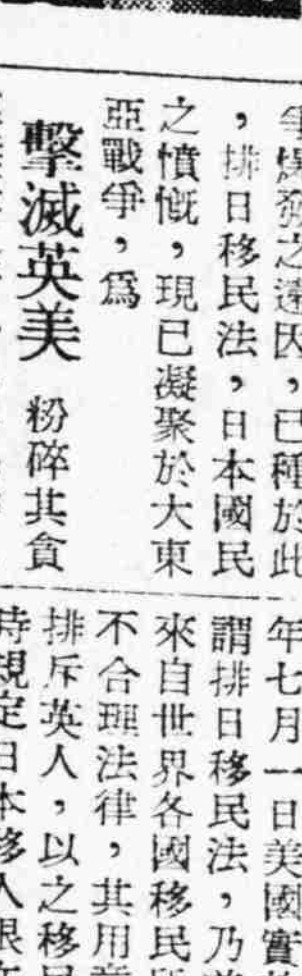 爭爆發之遠因，已種於此
，排日移民法，日本國民
之憤慨，現已凝聚於大東
亞戰爭，爲
擊滅英美　粉碎其貪
年七月一日美國實
謂排日移民法，乃
來自世界各國移民
不合理法律，其用意
排斥英人，以之移民
時規定日本移人限